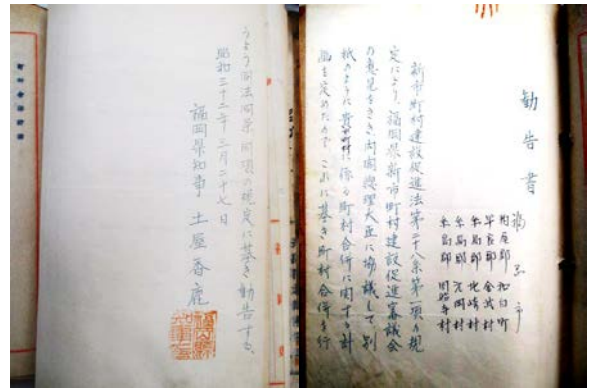 勧告書
福岡市
粕屋郡 和白町
早良郡 金武村
糸島郡 北崎村
糸島郡 元岡村
糸島郡 周船寺村
新市町村建設促進法第二十八条第一項の規
定により、福岡県新市町村建設促進審議会
の意見をきき内閣総理大臣に協議して別
紙のように貴市町村に係る町村合併に関する計
画を定めたので、これに基き町村合併を行
うよう同法同条同項の規定に基き勧告する。
昭和三十二年三月二十七日
福岡県知事 土屋香鹿